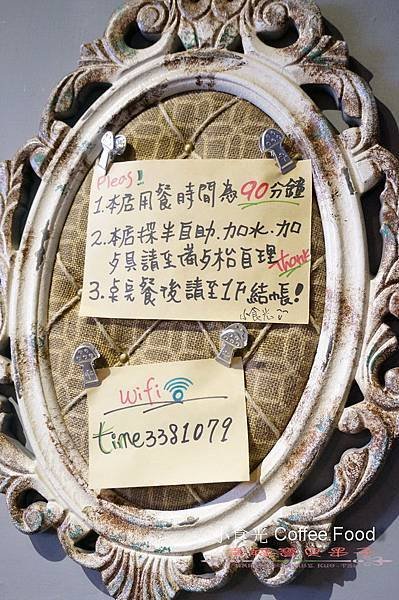 Pleas!
1.本店用餐時間為90分鐘
2.本店採半自助.加水.加
具請至備
自理
Thank
3.桌餐後請至1F結帳!
小食光
wifi
time3381079
小食光 Coffee Food